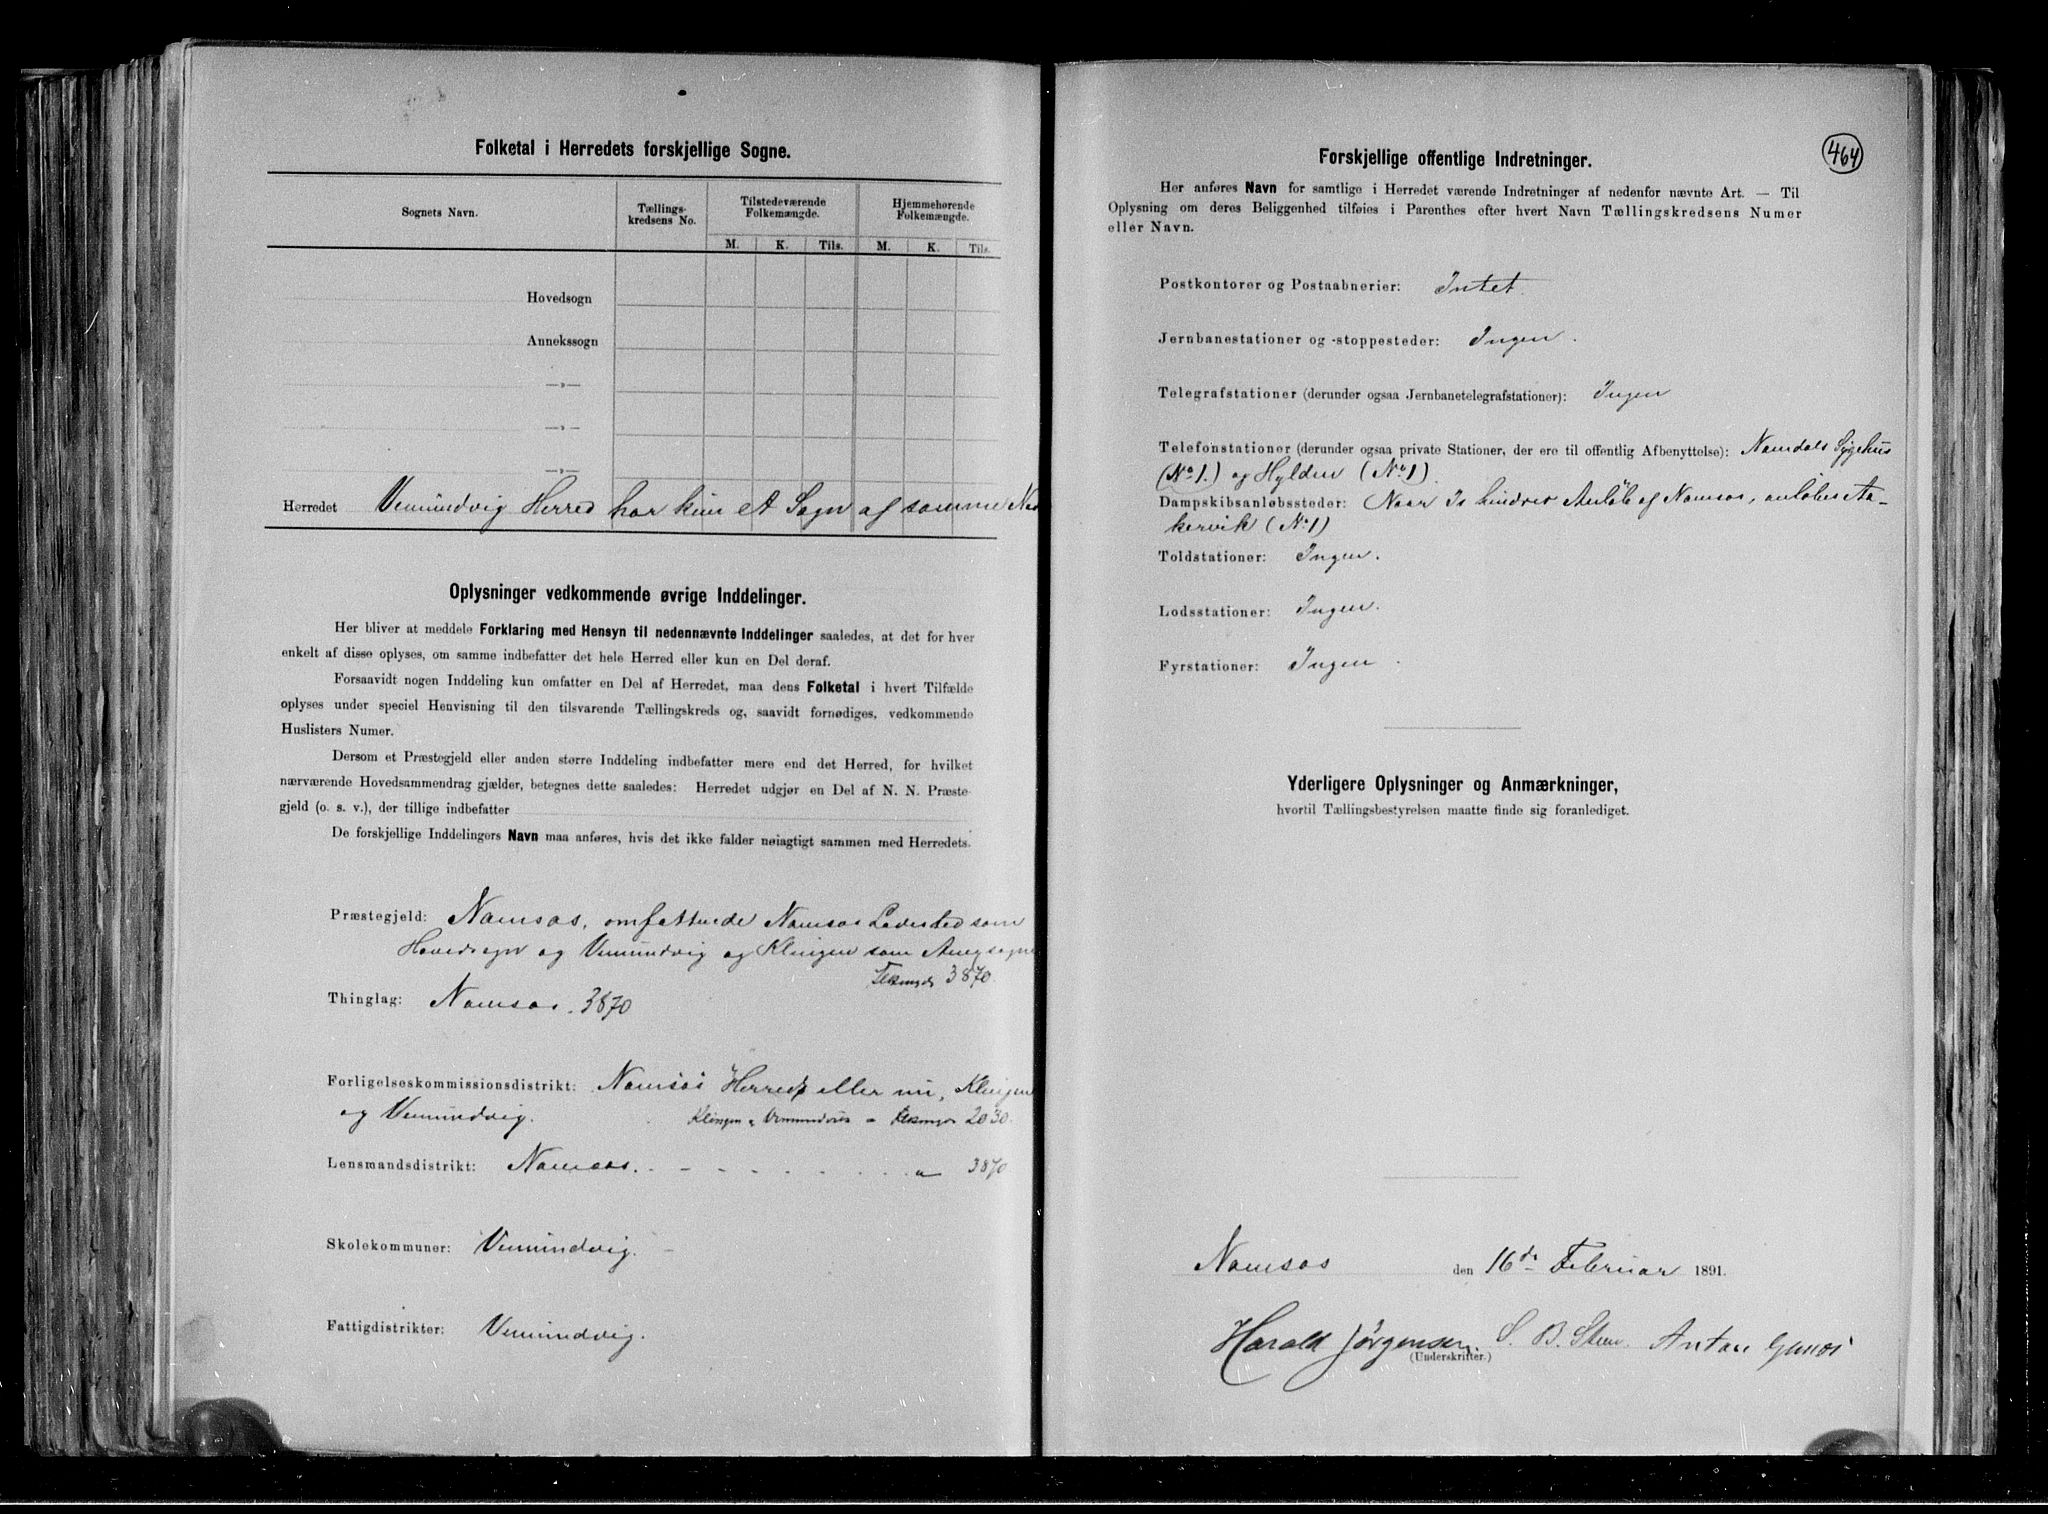 Folketal i Herredets forskjellige Sogne.
Sognets Navn.
Tællings-
kredsens No.
Tilstedeværende
Folkemængde.
Hjemmehørende
Folkemængde.
M. K. Tils. M. K. Tils.
Hovedsogn
Annekssogn
—„—
—„—
—„—
Herredet Vemundvig Herred har kun et Sogn af samme
Oplysninger vedkommende øvrige Inddelinger.
Her bliver at meddele Forklaring med Hensyn til nedennævnte Inddelinger saaledes, at det for hver
enkelt af disse oplyses, om samme indbefatter det hele Herred eller kun en Del deraf.
Forsaavidt nogen Inddeling kun omfatter en Del af Herredet, maa dens Folketal i hvert Tilfælde
oplyses under speciel Henvisning til den tilsvarende Tællingskreds og, saavidt fornødiges, vedkommende
Huslisters Numer.
Dersom et Præstegjeld eller anden større Inddeling indbefatter mere end det Herred, for hvilket
nærværende Hovedsammendrag gjælder, betegnes dette saaledes: Herredet udgjør en Del af N. N. Præste-
gjeld (o. s. v.), der tillige indbefatter
De forskjellige Inddelingers Navn maa anføres, hvis det ikke falder nøiagtigt sammen med Herredets.
Præstegjeld: Namsos, omfattende Namsos Ladested som
Hovedsogn og Vemundvig og Klingen som
3870.
Thinglag: Namsos. 3870
Forligelseskommissionsdistrikt: Namsos Herred eller nu, Klingen
og Vemundvig. Klingen 2030.
Lensmandsdistrikt: Namsos. 3870
Skolekommuner: Vemundvig.
Fattigdistrikter: Vemundvig.
464
Forskjellige offentlige Indretninger.
Her anføres Navn for samtlige i Herredet værende Indretninger af nedenfor nævnte Art. — Til
Oplysning om deres Beliggenhed tilføies i Parenthes efter hvert Navn Tællingskredsens Numer
eller Navn.
Postkontorer og Postaabnerier: Intet.
Jernbanestationer og -stoppesteder: Ingen.
Telegrafstationer (derunder ogsaa Jernbanetelegrafstationer): Ingen
Telefonstationer (derunder ogsaa private Stationer, der ere til offentlig Afbenyttelse): Namdals Sygehus
(No 1.) og Hylden (No 1).
Dampskibsanløbsteder: Naar Is hindrer Anløb af Namsos, anløbes Aa-
kervik (No 1)
Toldstationer: Ingen.
Lodsstationer: Ingen.
Fyrstationer: Ingen.
Yderligere Oplysninger og Anmærkninger,
hvortil Tællingsbestyrelsen maatte finde sig foranlediget.
Namsos den 16de Februar 1891.
Harald Jørgensen. S. B. Anton
(Underskrifter.)